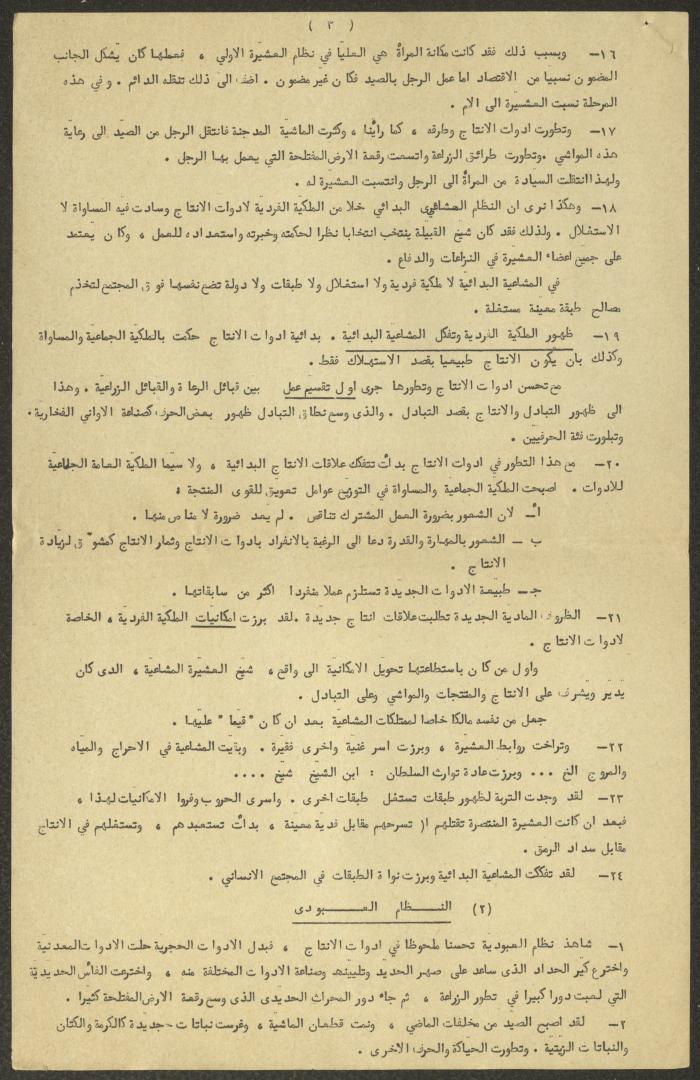 ( ٣ )
١٦– وبسبب ذلك فقد كانت مكانة المرأة هي العليا في نظام العشيرة الاولي ، فعملها كان يشكل الجانب
المضمون نسبيا من الاقتصاد اما عمل الرجل بالصيد فكان غير مضمون . اضف الى ذلك تنقله الدائم . وفي هذه
المرحلة نسبت العشيرة الى الام .
١٧– وتطورت ادوات الانتاج وطرقه ، كما رأينا ، وكثرت الماشية المدجنة فانتقل الرجل من الصيد الى رعاية
هذه المواشي . وتطورت طرائق الزراعة واتسعت رقعة الارض المفتلحة التي يعمل بها الرجل .
ولهذا انتقلت السيادة من المرأة الى الرجل وانتسبت العشيرة له .
١٨– وهكذا نرى ان النظام العشائري البدائي خلا من الملكية الفردية لادوات الانتاج وسادت فيه المساواة لا
الاستغلال . ولذلك فقد كان شيخ القبيلة ينتخب انتخابا نظرا لحكمته وخبرته واستعداده للعمل ، وكان يعتمد
على جميع اعضاء العشيرة في النزاعات والدفاع .
في المشاعية البدائية لا ملكية فردية ولا استغلال ولا طبقات ولا دولة تضع نفسها فوق المجتمع لتخدم
مصالح طبقة معينة مستغلة .
١٩– ظهور الملكية الفردية وتفكك المشاعية البدائية . بدائية ادوات الانتاج حكمت بالملكية الجماعية والمساواة
وكذلك بان يكون الانتاج طبيعيا بقصد الاستهلاك فقط .
مع تحسن ادوات الانتاج وتطورها جرى اول تقسيم عمل بين قبائل الرعاة والقبائل الزراعية . وهذا
الى ظهور التبادل والانتاج بقصد التبادل . والذى وسع نطاق التبادل ظهور بعض الحرف كصناعة الاواني الفخارية .
وتبلورت فئة الحرفيين .
٢٠– مع هذا التطور في ادوات الانتاج بدأت تتفكك علاقات الانتاج البدائية ، ولا سيما الملكية العامة الجماعية
للادوات . اصبحت الملكية الجماعية والمساواة في التوزيع عوامل تعويق للقوى المنتجة :
أ– لان الشعور بضرورة العمل المشترك تناقص . لم يعد ضرورة لا مناص منها .
ب – الشعور بالمهارة والقدرة دعا الى الرغبة بالانفراد بادوات الانتاج وثمار الانتاج كمشوق لزيادة
الانتاج .
ج– طبيعة الادوات الجديدة تستلزم عملا منفردا اكثر من سابقاتها .
٢١– الظروف المادية الجديدة تطلبت علاقات انتاج جديدة . لقد برزت امكانيات الملكية الفردية ، الخاصة
لادوات الانتاج .
واول من كان باستطاعتها تحويل الامكانية الى واقع ، شيخ العشيرة المشاعية ، الذى كان
يدير ويشرف على الانتاج والمنتجات والمواشي وعلى التبادل .
جعل من نفسه مالكا خاصا لممتلكات المشاعية بعد ان كان " قيما " عليها .
٢٢– وتراخت روابط العشيرة ، وبرزت اسر غنية واخرى فقيرة . وبقيت المشاعية في الاحراج والمياه
والمروج الخ ... وبرزت عادة توارث السلطان : ابن الشيخ شيخ ....
٢٣– لقد وجدت التربة لظهور طبقات تستغل طبقات اخرى . واسرى الحروب وفروا الامكانيات لهذا ،
فبعد ان كانت العشيرة المنتصرة تقتلهم او تسرحهم مقابل فدية معينة ، بدأت تستعبدهم ، وتستغلهم في الانتاج
مقابل سداد الرمق .
٢٤– لقد تفككت المشاعية البدائية وبرزت نواة الطبقات في المجتمع الانساني .
(٢) النـــظام العـــبودى
١– شاهد نظام العبودية تحسنا ملحوظا في ادوات الانتاج ، فبدل الادوات الحجرية حلت الادوات المعدنية
واخترع كير الحداد الذى ساعد على صهر الحديد وتليينه وصناعة الادوات المختلفة منه ، واخترعت الفأس الحديدية
التي لعبت دورا كبيرا في تطور الزراعة ، ثم جاء دور المحراث الحديدى الذى وسع رقعة الارض المفتلحة كثيرا .
٢– لقد اصبح الصيد من مخلفات الماضي ، ونمت قطعان الماشية ، وغرست نباتات جديدة كالكرمة والكتان
والنباتات الزيتية . وتطورت الحياكة والحرف الاخرى .